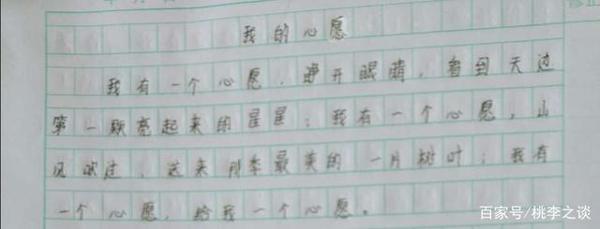 我的心愿
我有一个心愿，睁开眼睛，看到天边
第一颗亮起来的星星；我有一个心愿，山
风吹过，送来四季最美的一片树叶；我有
一个心愿，给我一个心愿。
百家号/桃李之谈